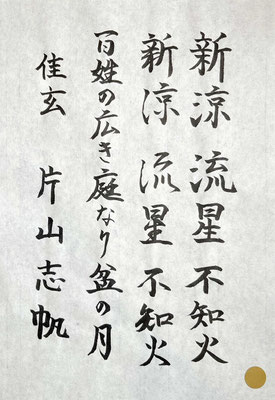 新涼 流星 不知火
新涼 流星 不知火
百姓の広き庭なり盆の月
佳玄 片山志帆